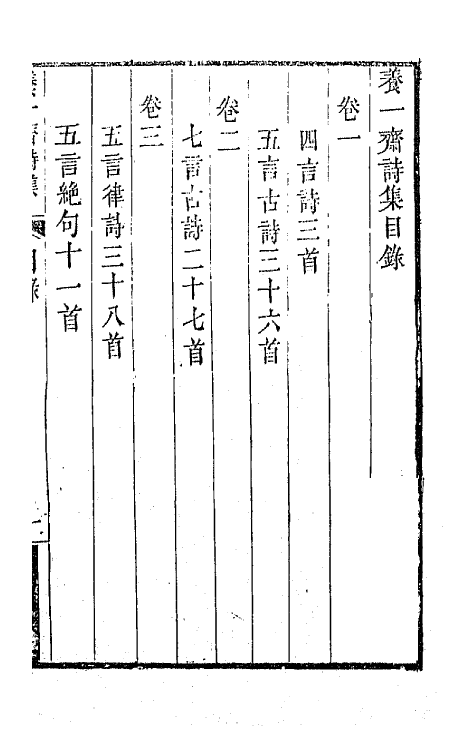 養一齋詩集目錄
卷一
四言詩三首
五言古詩三十六首
卷二
七言古詩二十七首
卷三
五言律詩三十八首
五言絕句十一首
養一齋詩集
目錄